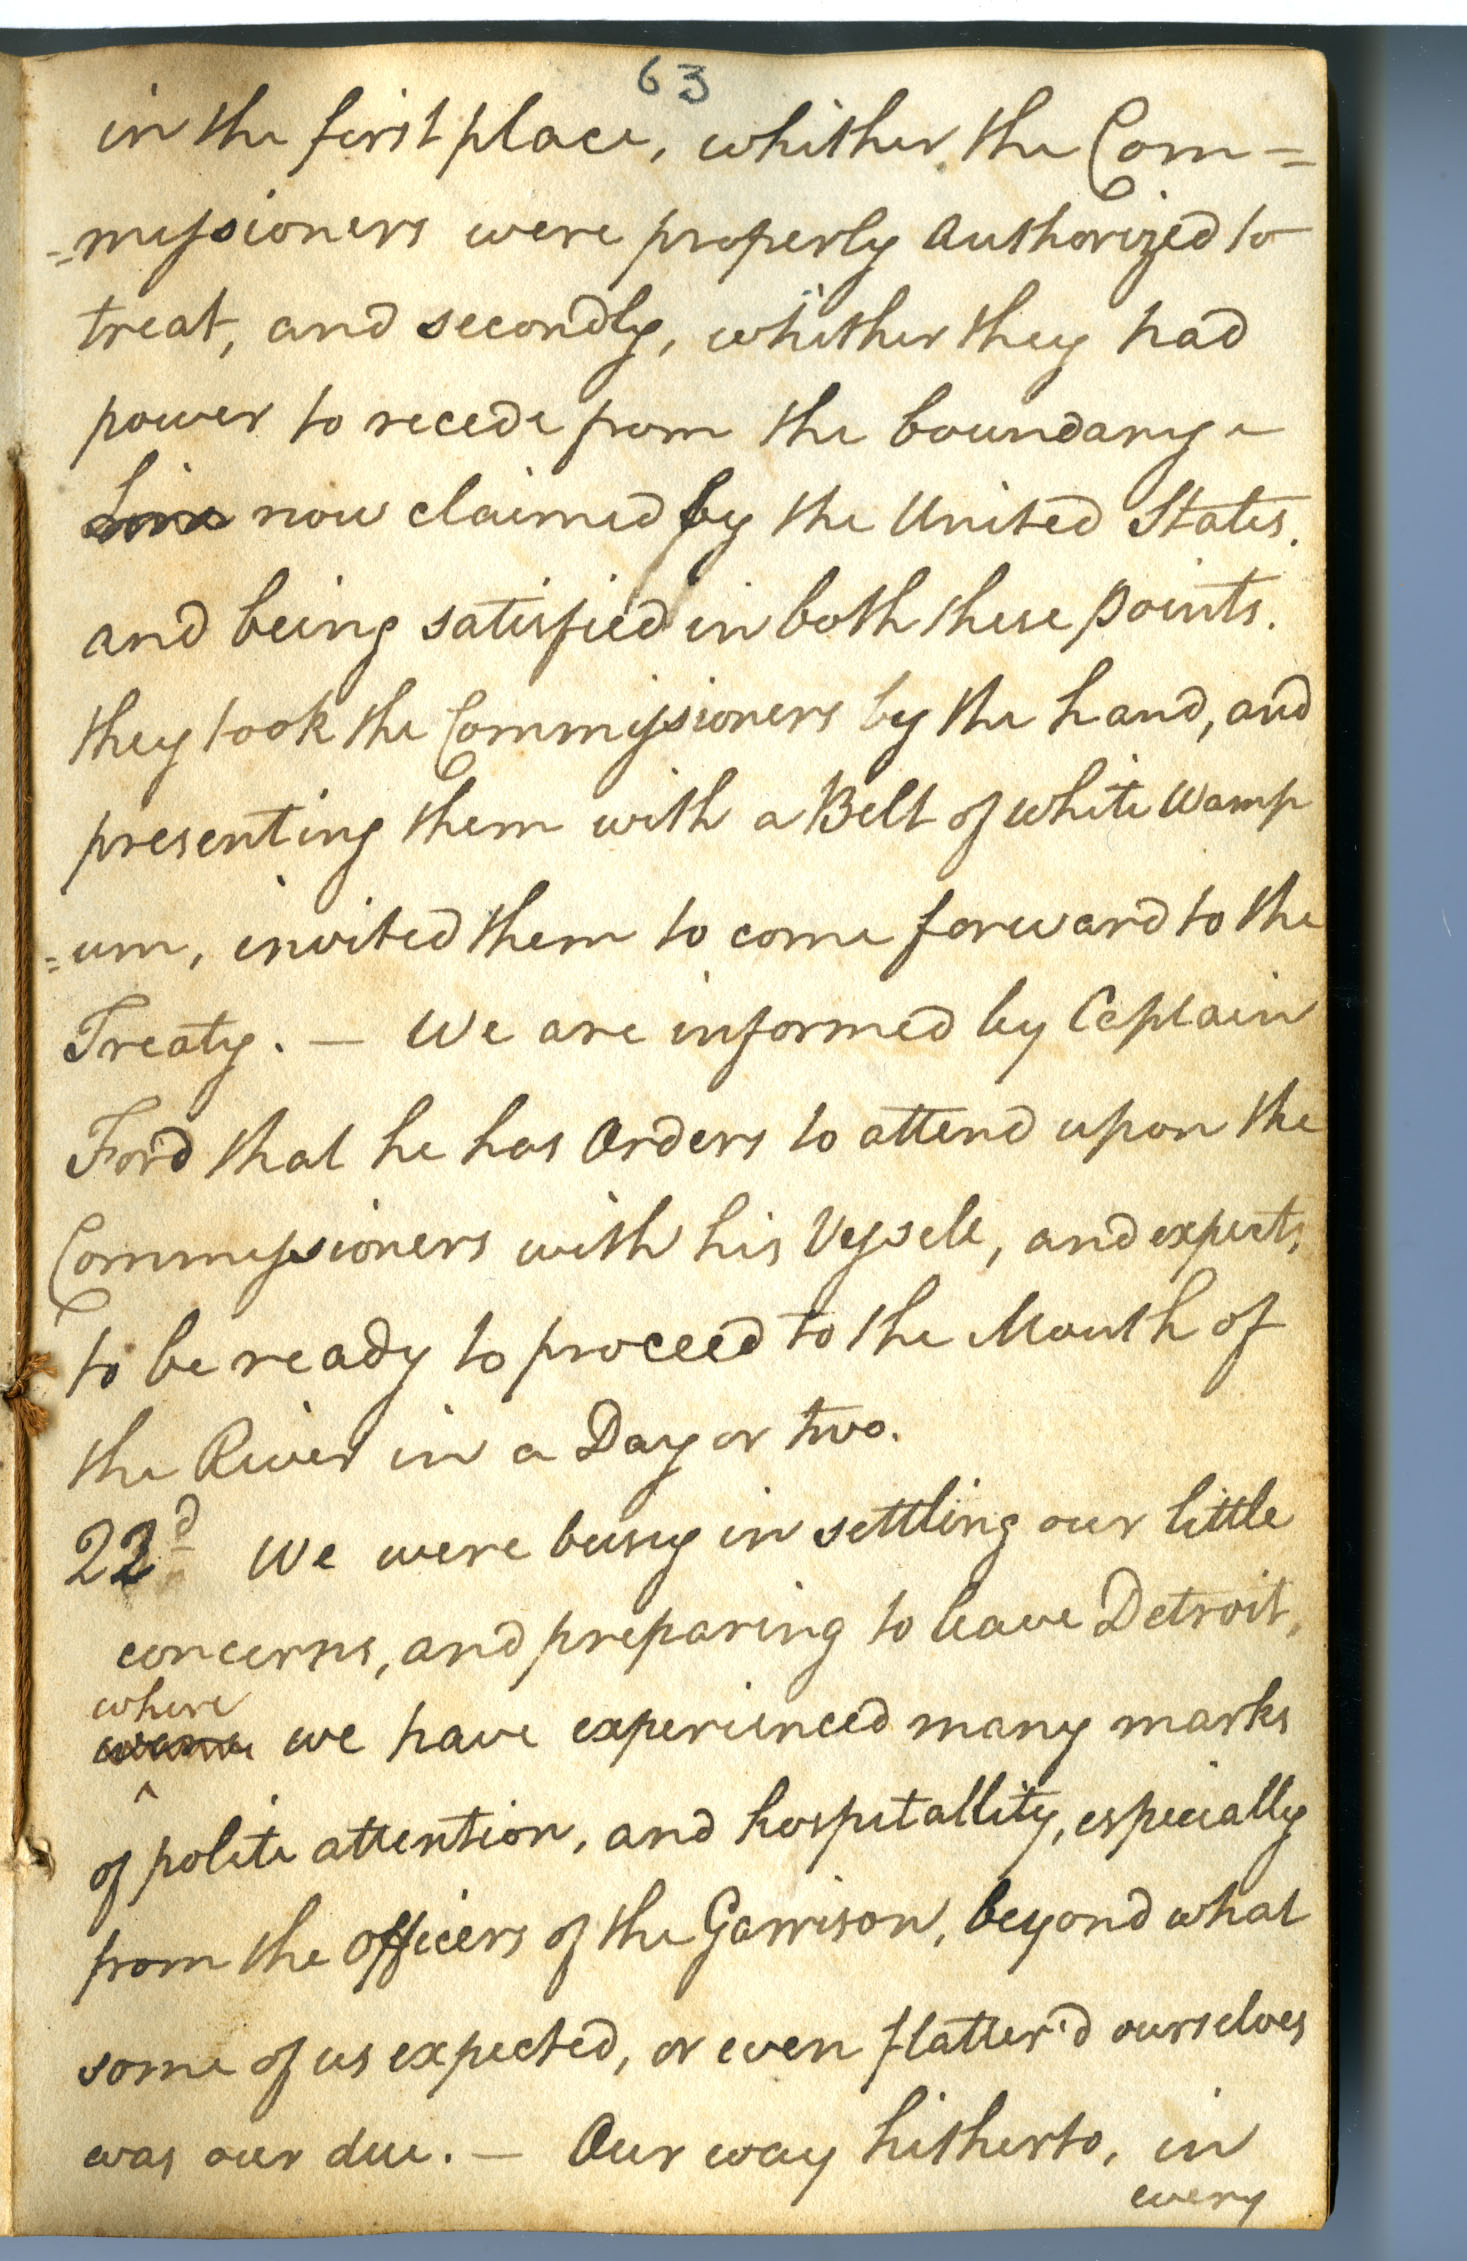 63
in the first place, whither the Com=
=missioners were properly Authorized to
treat, and secondly, whither they had
power to recede from the boundary
Line now claimed by the United States.
and being satisfied in both these points.
they took the Commissioners by the hand, and
presenting them with a Belt of white Wamp
=um, invited them to come forward to the
Treaty. — We are informed by Captain
Ford that he has Orders to attend upon the
Commissioners with his Vessell, and expects
to be ready to proceed to the Mouth of
the River in a Day or two.
22d We were busy in settling our little
concerns, and preparing to leave Detroit,
where
we have experienced many marks
of polite attention, and hospitallity, especially
from the Officers of the Garrison, beyond what
some of us expected, or even flatter'd ourselves
was our due. — Our way hitherto, in
every